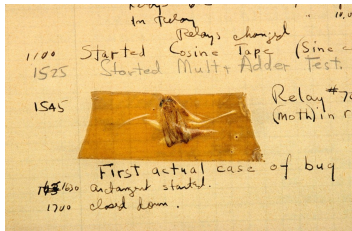 In Relay
Relays changed
1100 Started Cosine Tape (Sine c
1525 Started Mult+ Adder Test.
1545 Relay #70
(Moth) in r
First actual case of bug
1630 antangent started.
1700 closed down.